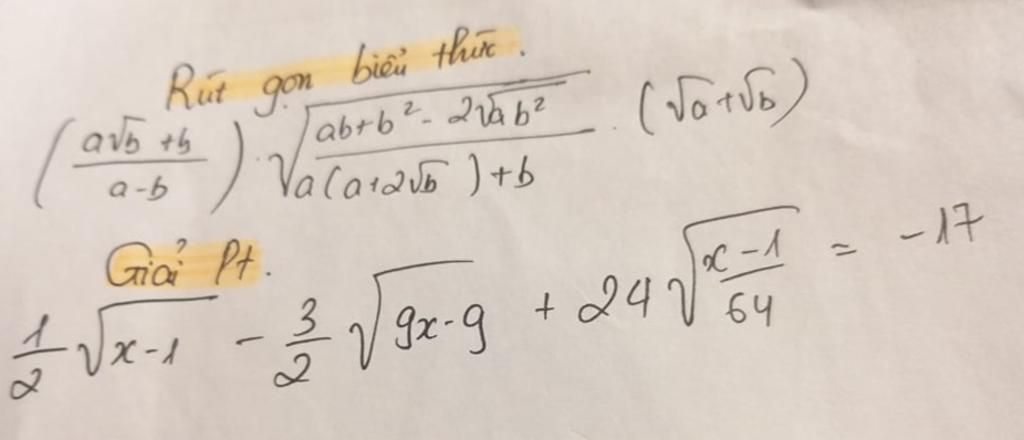 Rút gọn biểu thức.
(a√b + b / a - b) · √(ab + b² - 2√ab² / a(a + 2√b) + b) · (√a + √b)
Giải Pt.
1/2 √x - 1 - 3/2 √9x - 9 + 24 √(x - 1 / 64) = -17